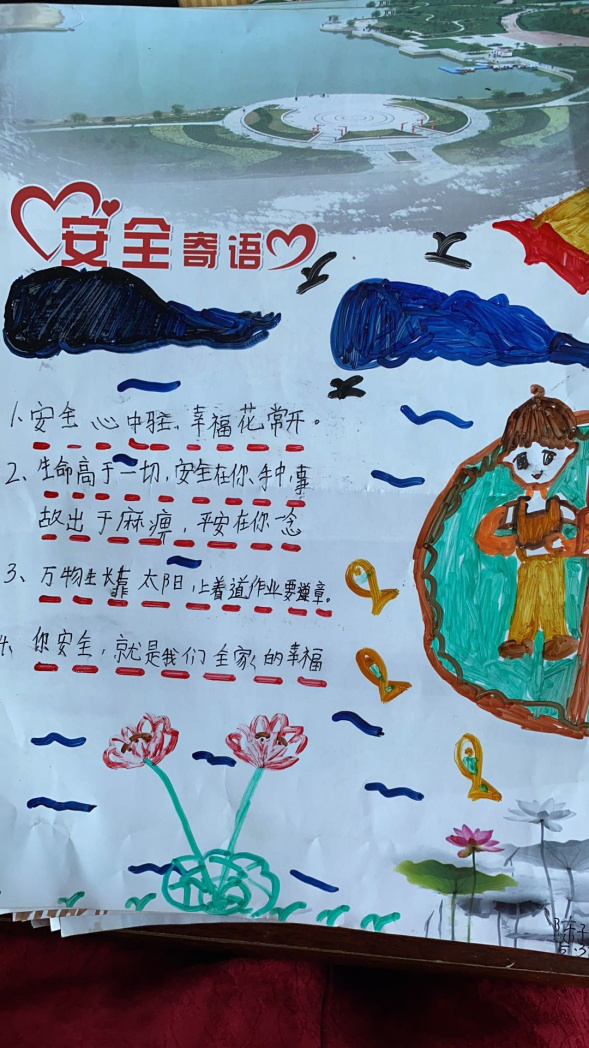 安全寄语
1、安全心中驻，幸福花常开。
2、生命高于一切，安全在你手中，事
故出于麻痹，平安在你一念
3、万物生长靠太阳，上着道作业要遵章。
4、你安全，就是我们全家人的幸福